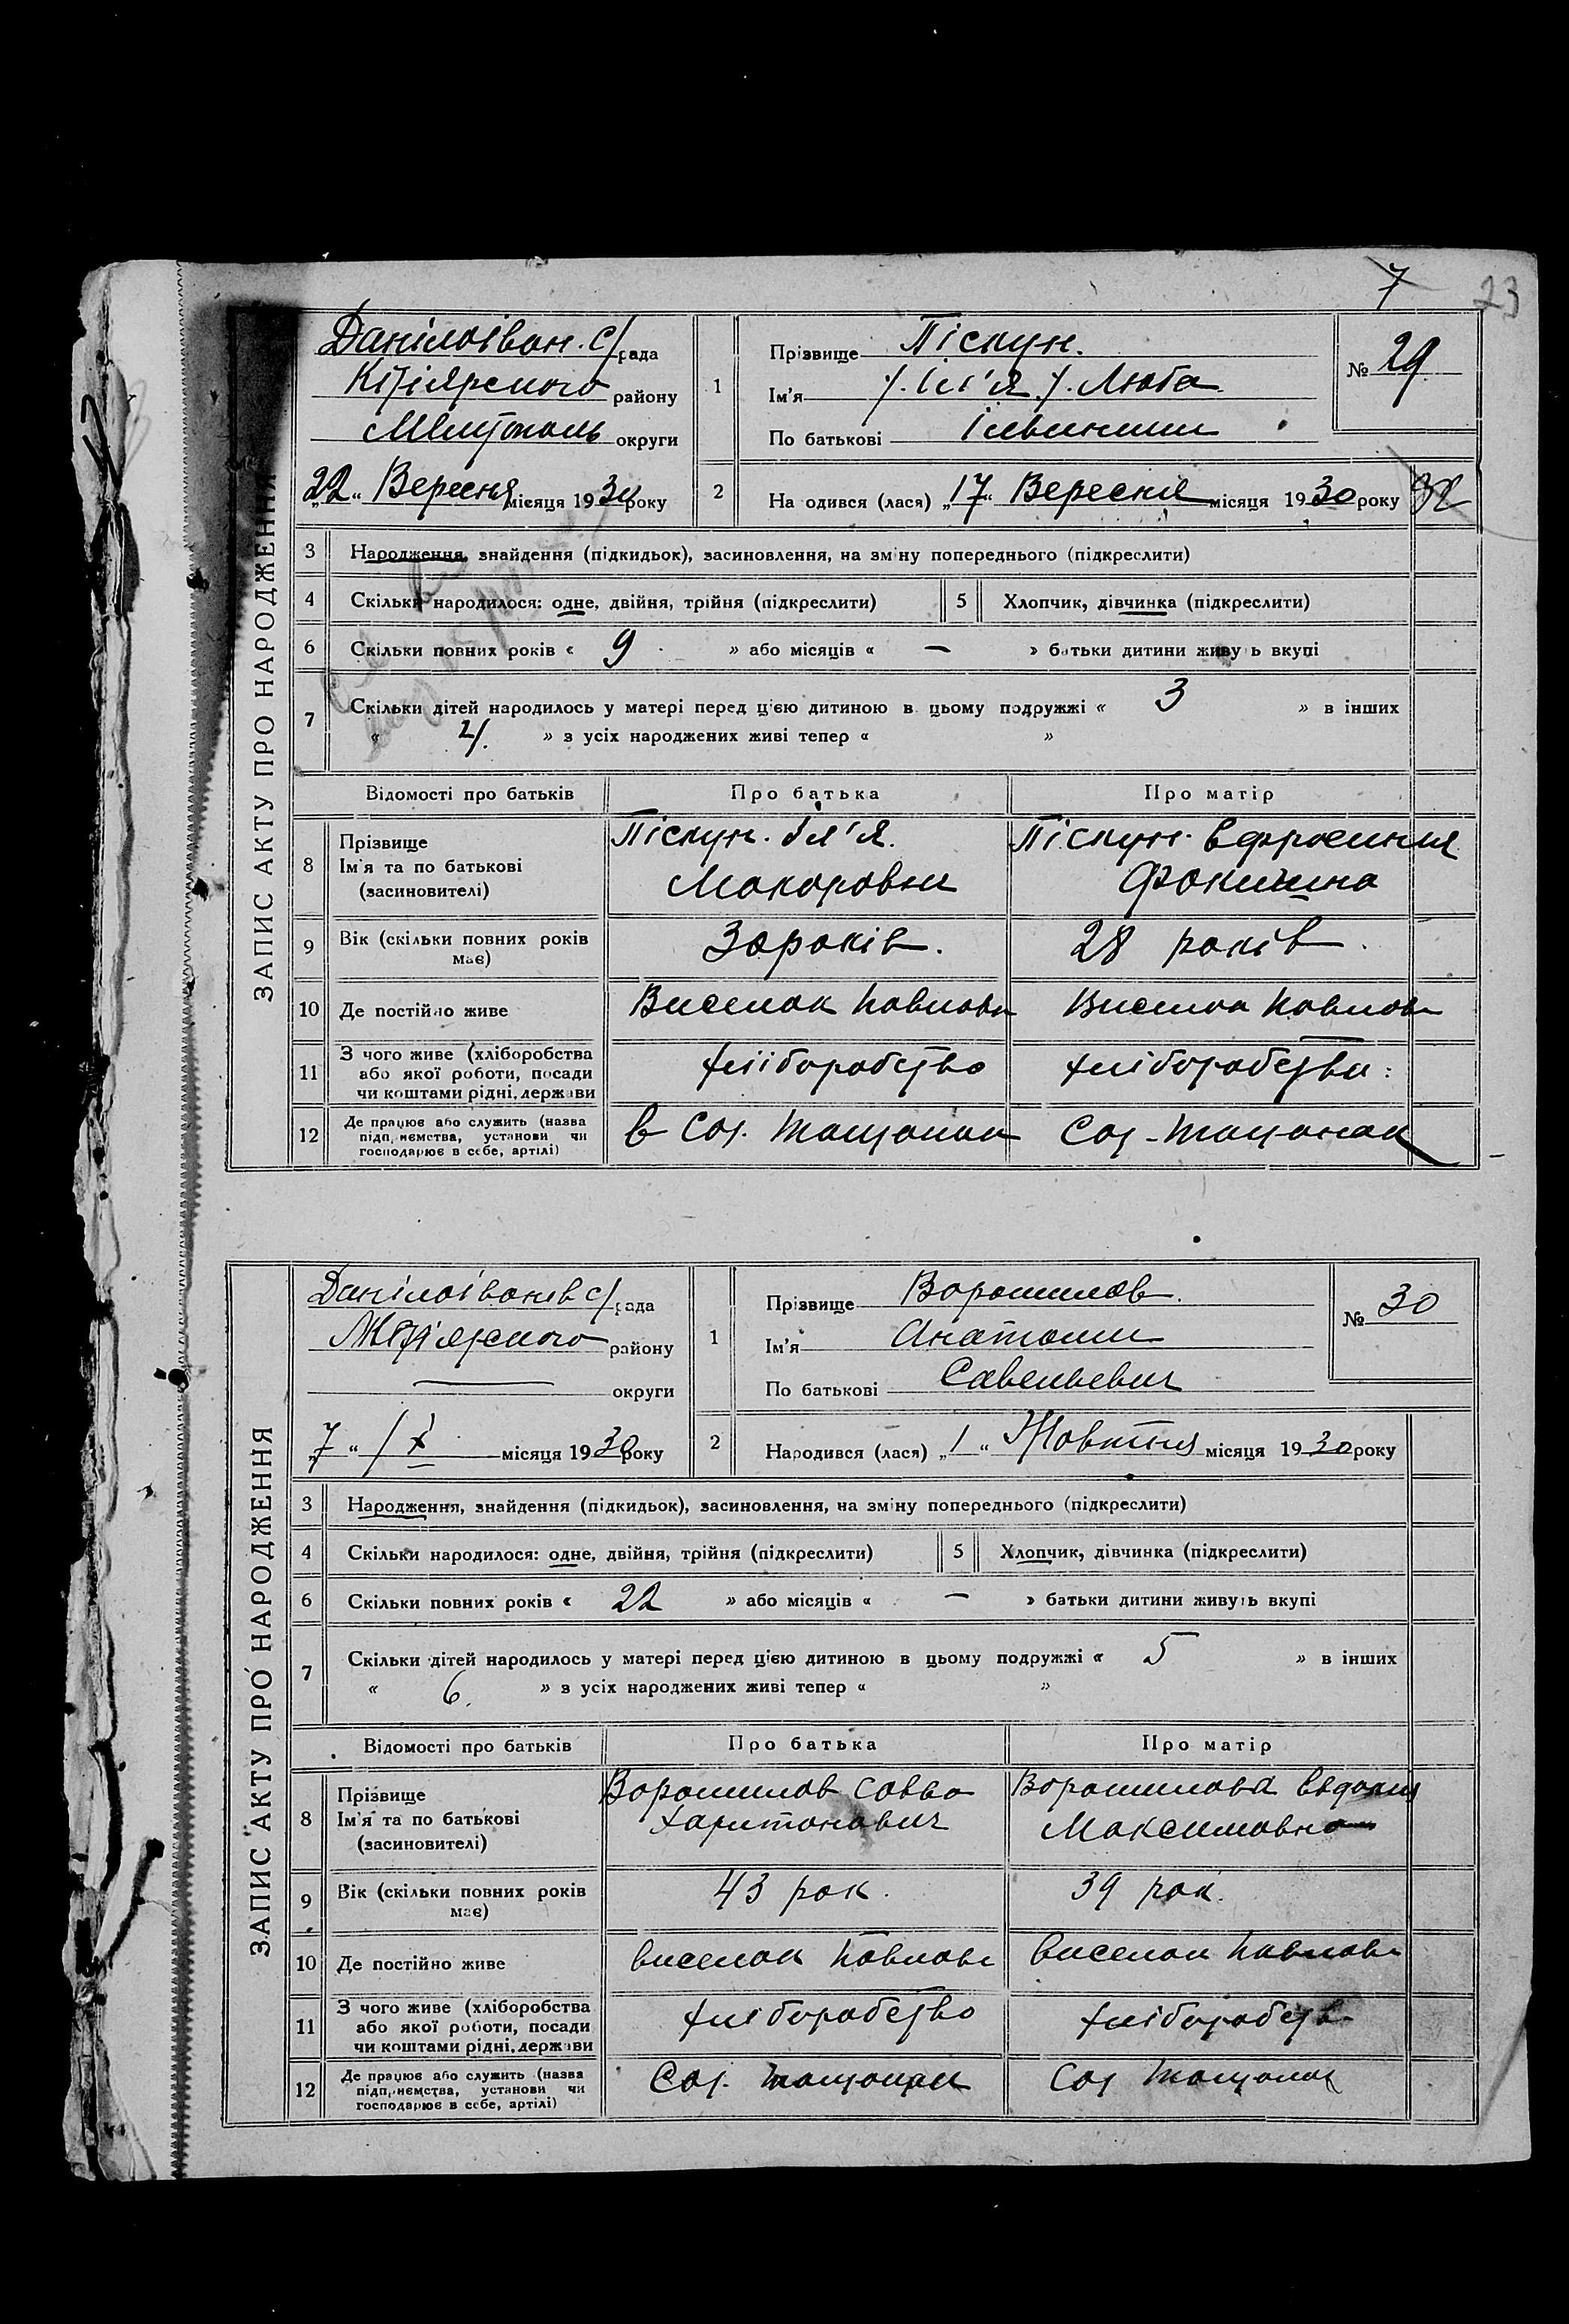 7
23
ЗАПИС АКТУ ПРО НАРОДЖЕННЯ
Данілоіван. с/рада
району
округи
1
Прізвище Піскун.
Ім'я Люба
По батькові
№ 29
22 „ Вересня місяця 1930 року
2
На одився (лася) „17“ Вересня місяця 1930 року
3 Народження, знайдення (підкидьок), засиновлення, на зміну попереднього (підкреслити)
4 Скільки народилося: одне, двійня, трійня (підкреслити)
5 Хлопчик, дівчинка (підкреслити)
6 Скільки повних років « 9 » або місяців « — » батьки дитини живуть вкупі
7 Скільки дітей народилось у матері перед цією дитиною в цьому подружжі « 3 » в інших
« » з усіх народжених живі тепер « »
Відомості про батьків Про батька Про матір
8 Прізвище
Ім'я та по батькові
(засиновителі)
Піскун
Макоровии
Піскун
9 Вік (скільки повних років має)
30 років.
28 років
10 Де постійно живе
Виселок Павлови
Виселок Павлов
11 З чого живе (хліборобства
або якої роботи, посади
чи коштами рідні, держави
хліборобство
хліборобства
12 Де працює або служить (назва
підприємства, установи чи
господарює в себе, артілі)
в Соз.
Соз-
ЗАПИС АКТУ ПРО НАРОДЖЕННЯ
Данілоіванів с/рада
району
— округи
1
Прізвище Ворошилов.
Ім'я Анатолии
По батькові Савельевич
№ 30
„7“ /X місяця 1930 року
2
Народився (лася) „1“ Жовтня місяця 1930 року
3 Народження, знайдення (підкидьок), засиновлення, на зміну попереднього (підкреслити)
4 Скільки народилося: одне, двійня, трійня (підкреслити)
5 Хлопчик, дівчинка (підкреслити)
6 Скільки повних років « 22 » або місяців « — » батьки дитини живуть вкупі
7 Скільки дітей народилось у матері перед цією дитиною в цьому подружжі « 5 » в інших
« 6. » з усіх народжених живі тепер « »
Відомості про батьків Про батька Про матір
8 Прізвище
Ім'я та по батькові
(засиновителі)
Ворошилов Савва
Харитонович
Ворошилова Евдокия
Максимовна
9 Вік (скільки повних років має)
43 рок.
39 рок.
10 Де постійно живе
виселок Павлови
виселок Павлови
11 З чого живе (хліборобства
або якої роботи, посади
чи коштами рідні, держави
хліборобство
хліборобств
12 Де працює або служить (назва
підприємства, установи чи
господарює в себе, артілі)
Соз.
Соз